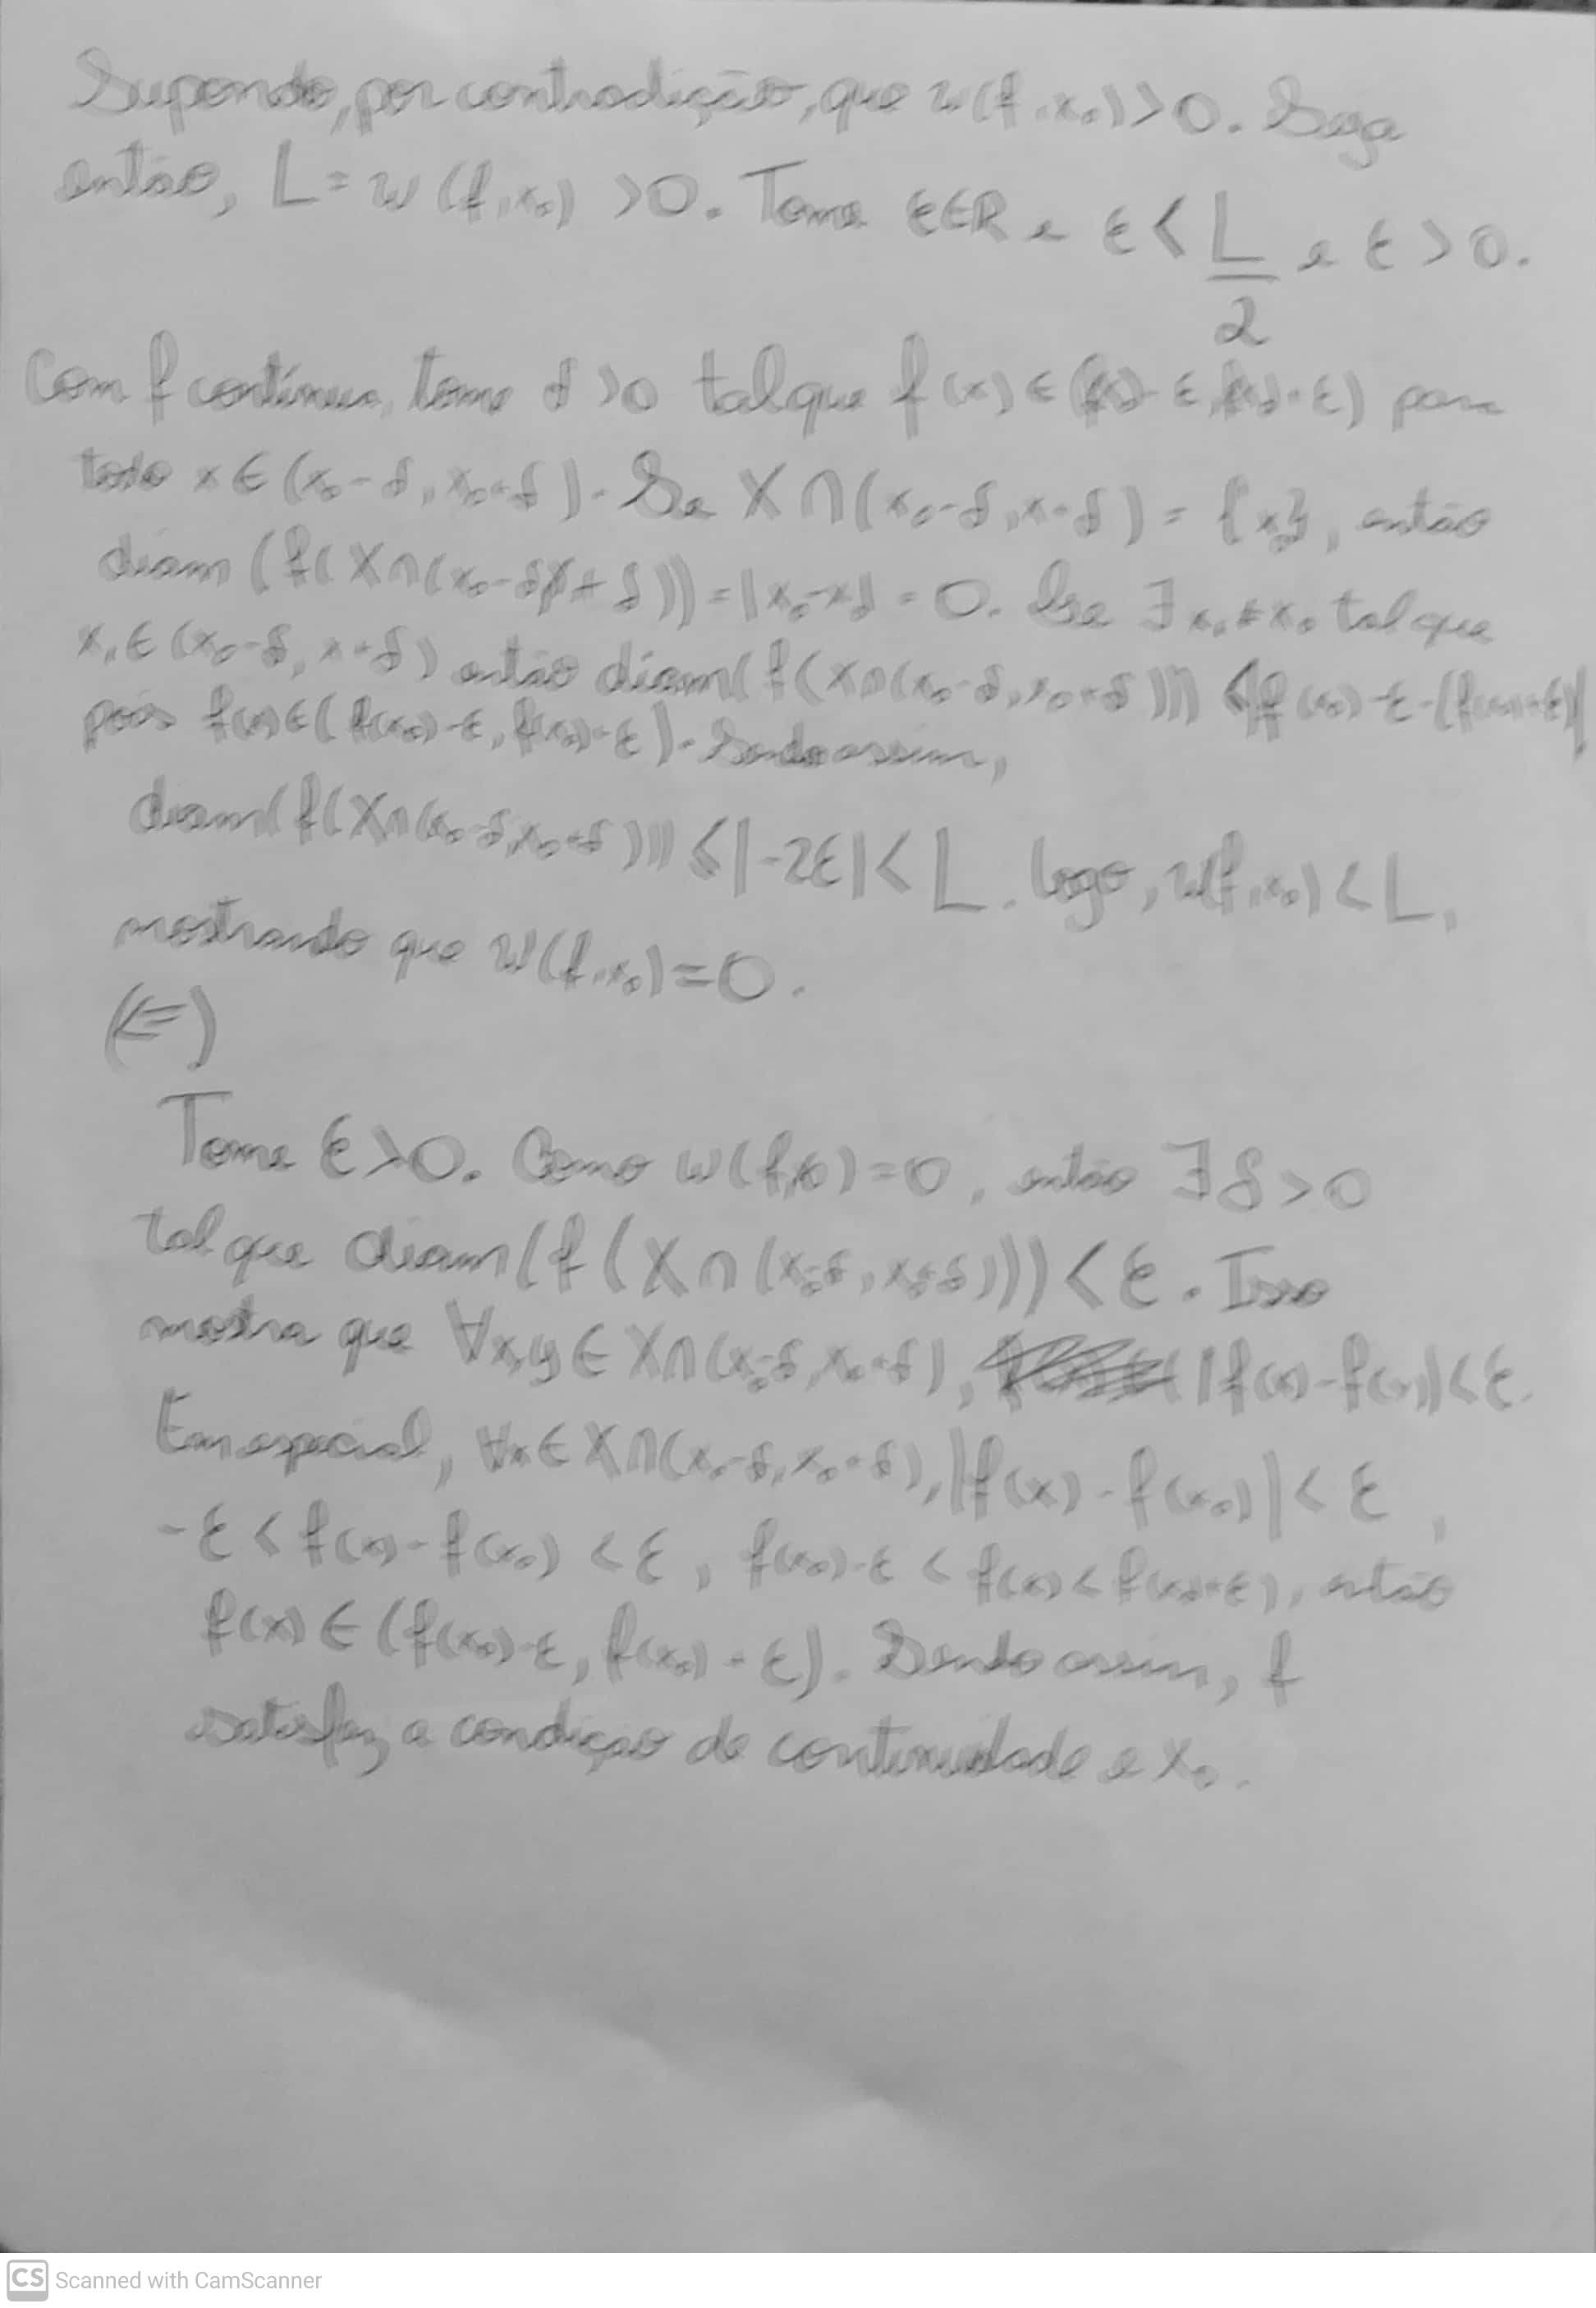 Supondo, por contradição, que w(f,x₀)>0. Seja
então, L=w(f,x₀)>0. Tome ε∈R e ε<L/2 e ε>0.
Com f contínua, tome δ>0 tal que f(x)∈(f(x₀)-ε,f(x₀)+ε) para
todo x∈(x₀-δ,x₀+δ). Se X∩(x₀-δ,x+δ)={x₀}, então
diam(f(X∩(x₀-δ,x+δ))=|x₀-x₀|=0. Se ∃x₁≠x₀ tal que
x₁∈(x₀-δ,x+δ) então diam(f(X∩(x₀-δ,x₀+δ))) ≤|f(x₀)-ε-(f(x₀)+ε)|
pois f(x)∈(f(x₀)-ε,f(x₀)+ε). Sendo assim,
diam(f(X∩(x₀-δ,x₀+δ))) ≤|-2ε|<L. Logo, w(f,x₀)<L,
mostrando que w(f,x₀)=0.
(⇐)
Tome ε>0. Como w(f,x₀)=0, então ∃δ>0
tal que diam(f(X∩(x₀-δ,x₀+δ)))<ε. Isso
mostra que ∀x,y∈X∩(x₀-δ,x₀+δ), |f(x)-f(y)|<ε.
Em especial, ∀x∈X∩(x₀-δ,x₀+δ), |f(x)-f(x₀)|<ε,
-ε<f(x)-f(x₀)<ε, f(x₀)-ε<f(x)<f(x₀)+ε), então
f(x)∈(f(x₀)-ε, f(x₀)+ε). Sendo assim, f
satisfaz a condição de continuidade e x₀.
CS Scanned with CamScanner